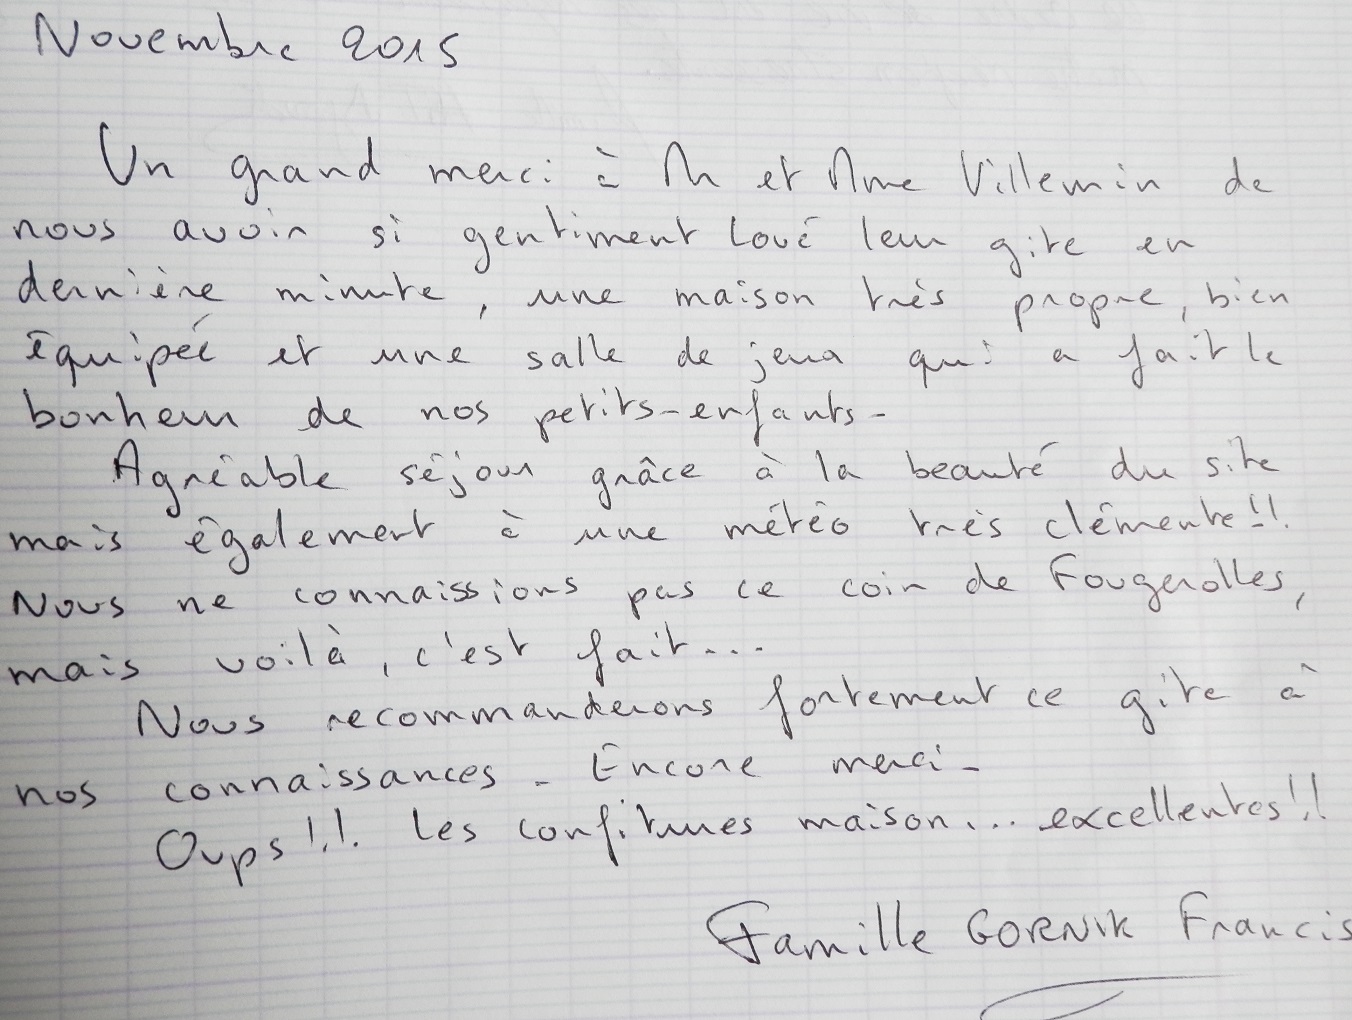 Novembre 2015
Un grand merci à M et Mme Villemin de
nous avoir si gentiment loué leur gite en
dernière minute, une maison très propre, bien
équipée et une salle de jeux qui a fait le
bonheur de nos petits-enfants.
Agréable séjour grâce à la beauté du site
mais également à une météo très clémente!!.
Nous ne connaissions pas ce coin de Fougerolles,
mais voilà, c'est fait...
Nous recommanderons fortement ce gite à
nos connaissances. Encore merci.
Oups!!! Les confitures maison... excellentes!!!
Famille GORNIK Francis